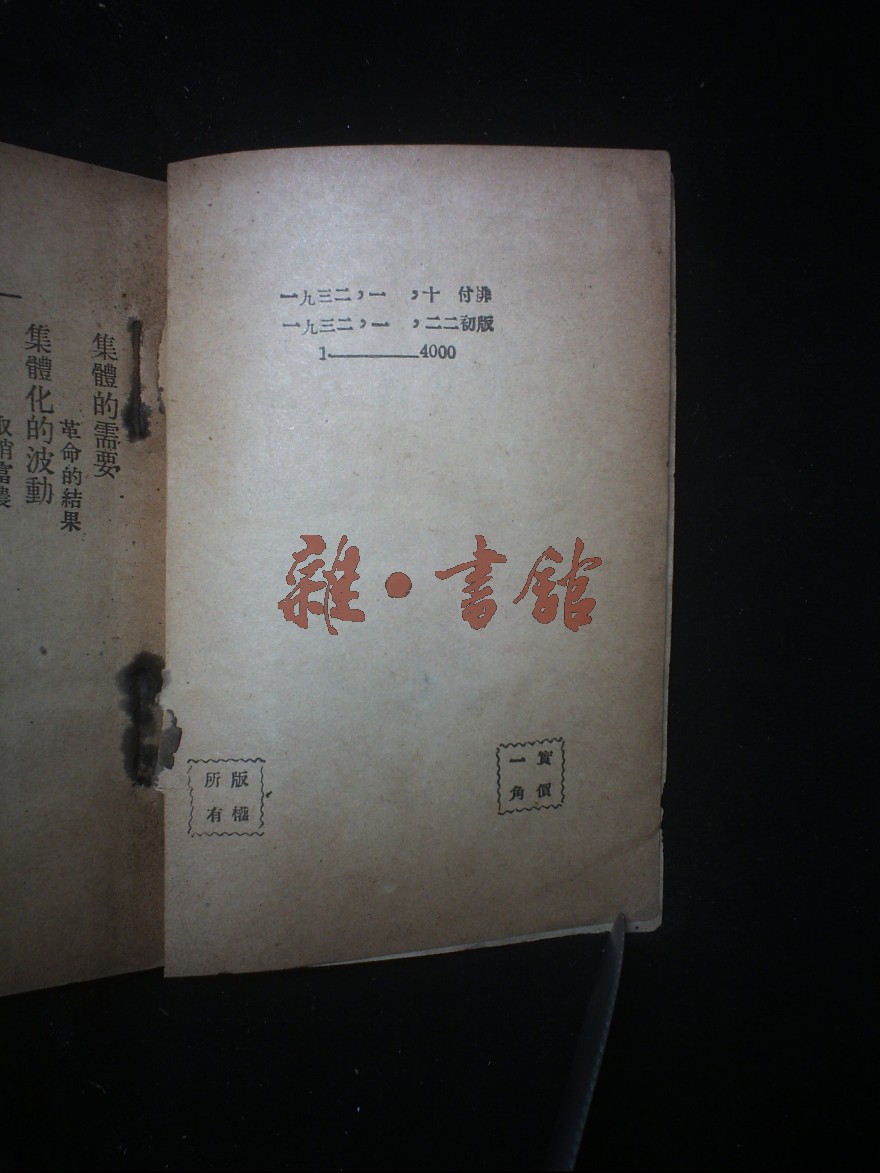 一九三二，一，十 付排
一九三二，一，二二初版
1————4000
雜·書館
實價
一角
版權
所有
集體的需要
革命的結果
集體化的波動
取消富農